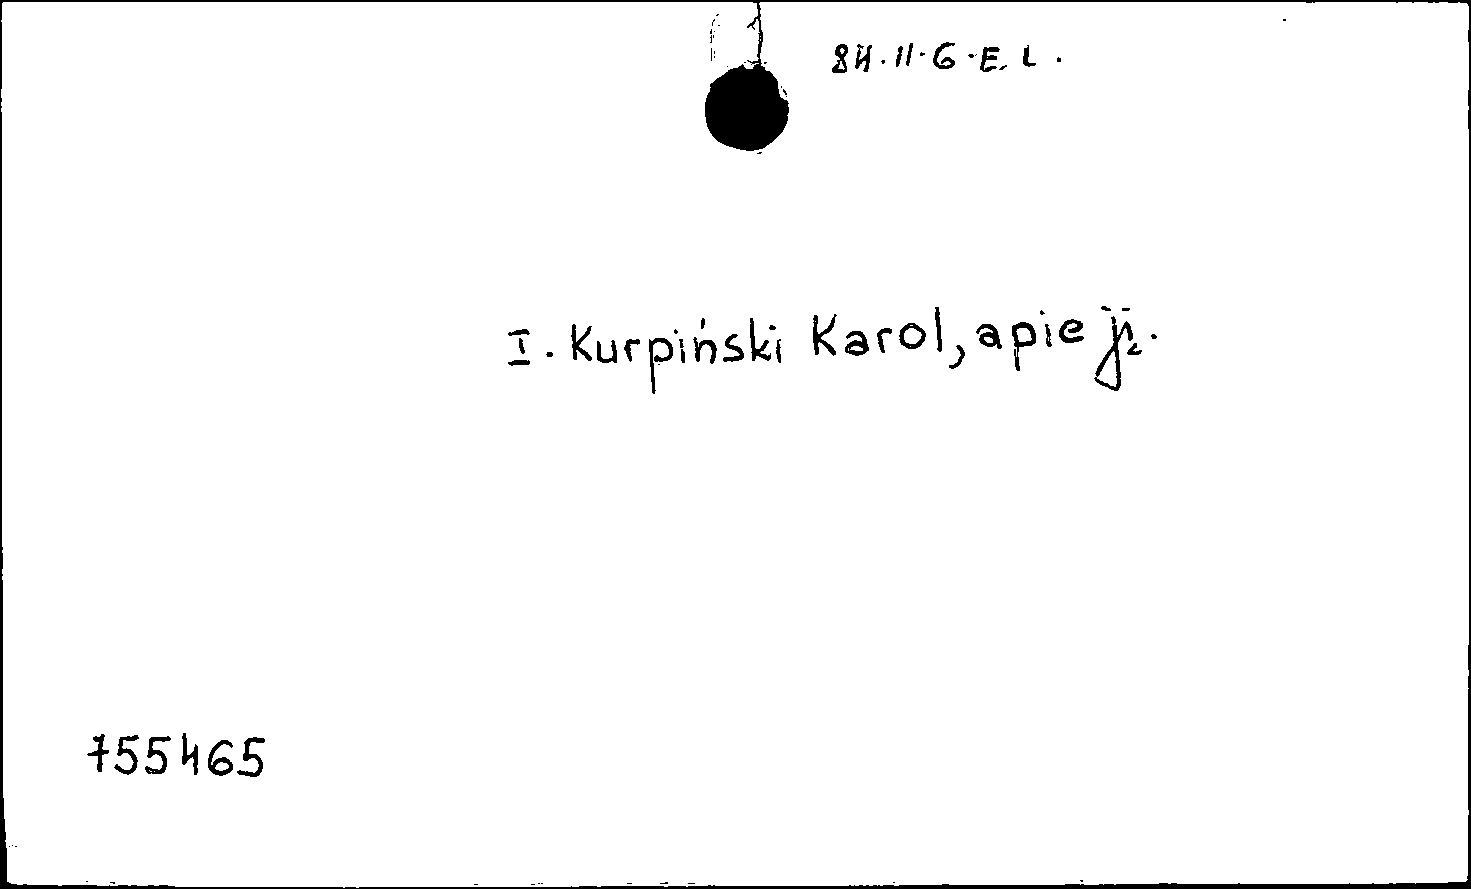 84.11.6.E.L.
I. Kurpiński Karol, apie jį.
755465